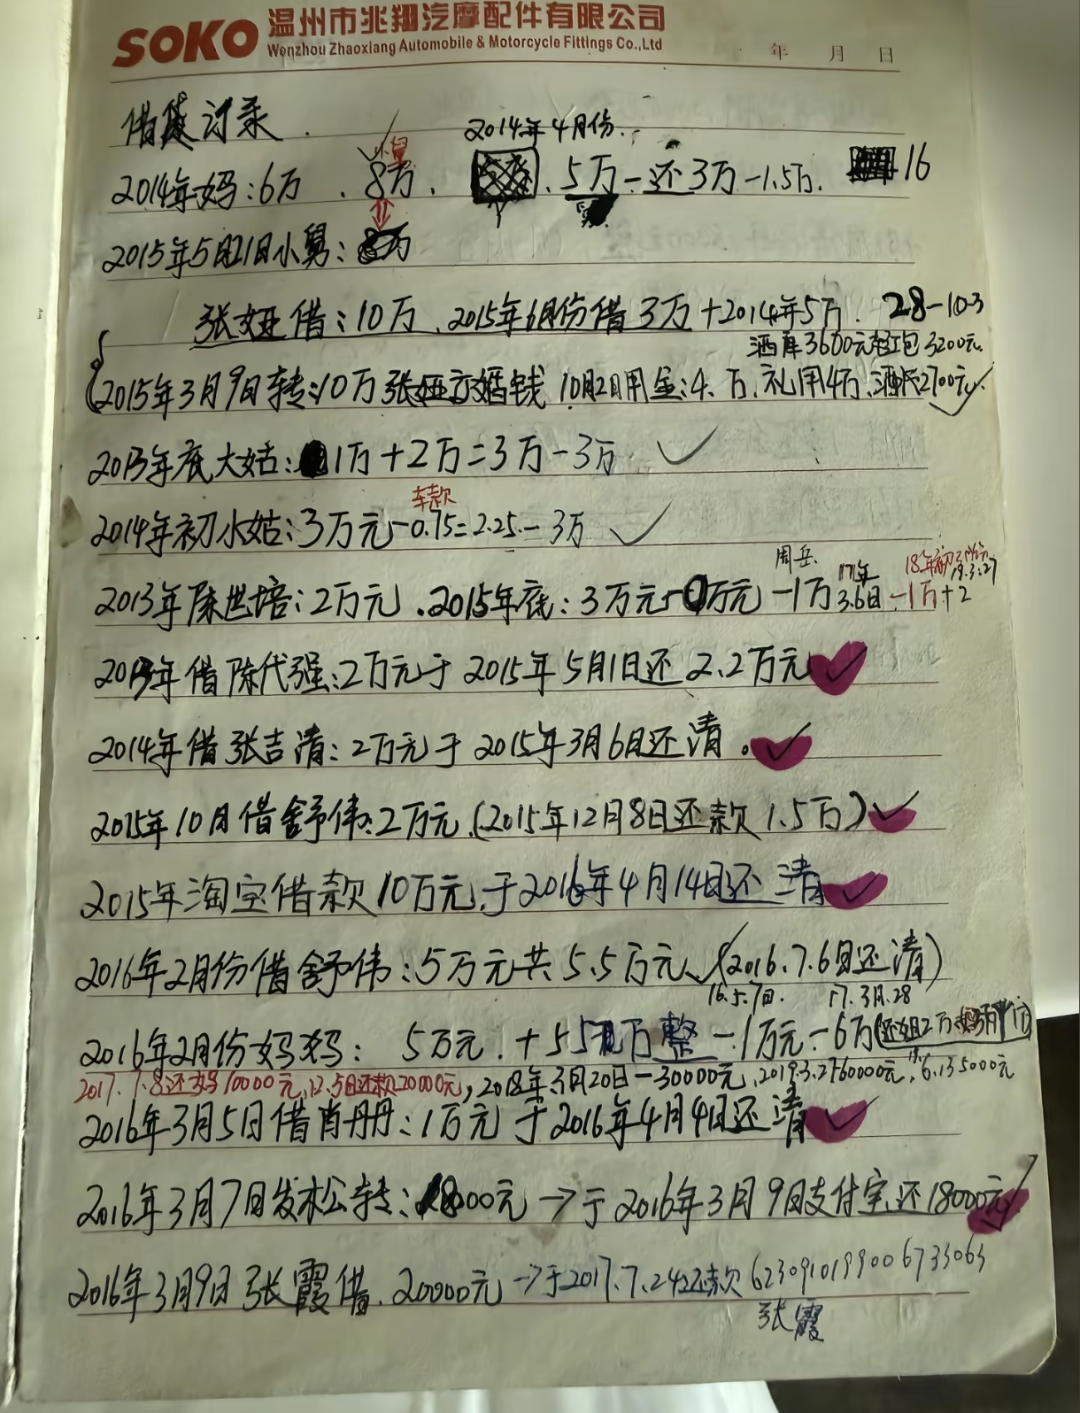 SOKO 温州市兆翔汽摩配件有限公司
Wenzhou Zhaoxiang Automobile & Motorcycle Fittings Co.,Ltd
年 月 日
借贷记录
2014年4月份
2014年妈:6万、8万、5万-还3万-1.5万. 16
2015年5月21日小舅:
张娅借:10万、2015年6月份借3万+2014年5万. 28-10-3
酒席3600元红包3200元
2015年3月9日转:10万张娅结婚钱 10月2日用金:4.万、礼用4万、2700元
2013年底大姑:1万+2万=3万-3万
车款
2014年初小姑:3万元-0.75=2.25-3万
周岳 17年 18年 19.3.27
2013年陈世培:2万元、2015年底:3万元-万元-1万 3.6日 -1万+2
2013年借陈代强:2万元于2015年5月1日还2.2万元
2014年借张吉清:2万元于2015年3月6日还清.
2015年10月借舒伟:2万元(2015年12月8日还款1.5万)
2015年淘宝借款10万元,于2016年4月14日还清
2016年2月份借舒伟:5万元共5.5万元(2016.7.6日还清)
16.5.7日. 17.3月.28
2016年2月份妈妈: 5万元.+5万整-1万元-6万(还姐2万
2017.7.8还妈10000元,12.5日还款20000元,2018年3月20日-30000元,2019.3.27 60000元,6.13 5000元
2016年3月5日借肖丹丹:1万元于2016年4月4日还清
2016年3月7日发本公转:18000元→于2016年3月9日支付宝还18000元
2016年3月9日张霞借.20000元→于2017.7.24还款 6230910199006733063
张霞